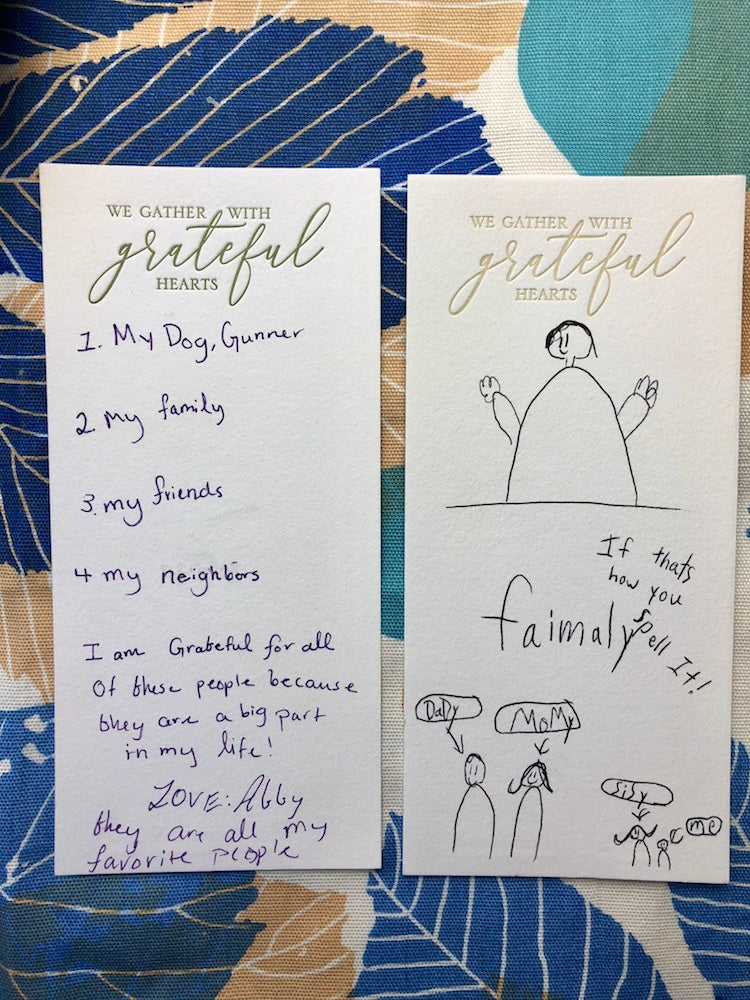 WE GATHER WITH
grateful
HEARTS
1. My Dog, Gunner
2 my family
3. my friends
4 my neighbors
I am Grateful for all
Of these people because
they are a big part
in my life!
LOVE: Abby
they are all my
favorite people
WE GATHER WITH
grateful
HEARTS
If thats
how you
spell It!
faimaly
DaDy
MoMy
SiSy
me